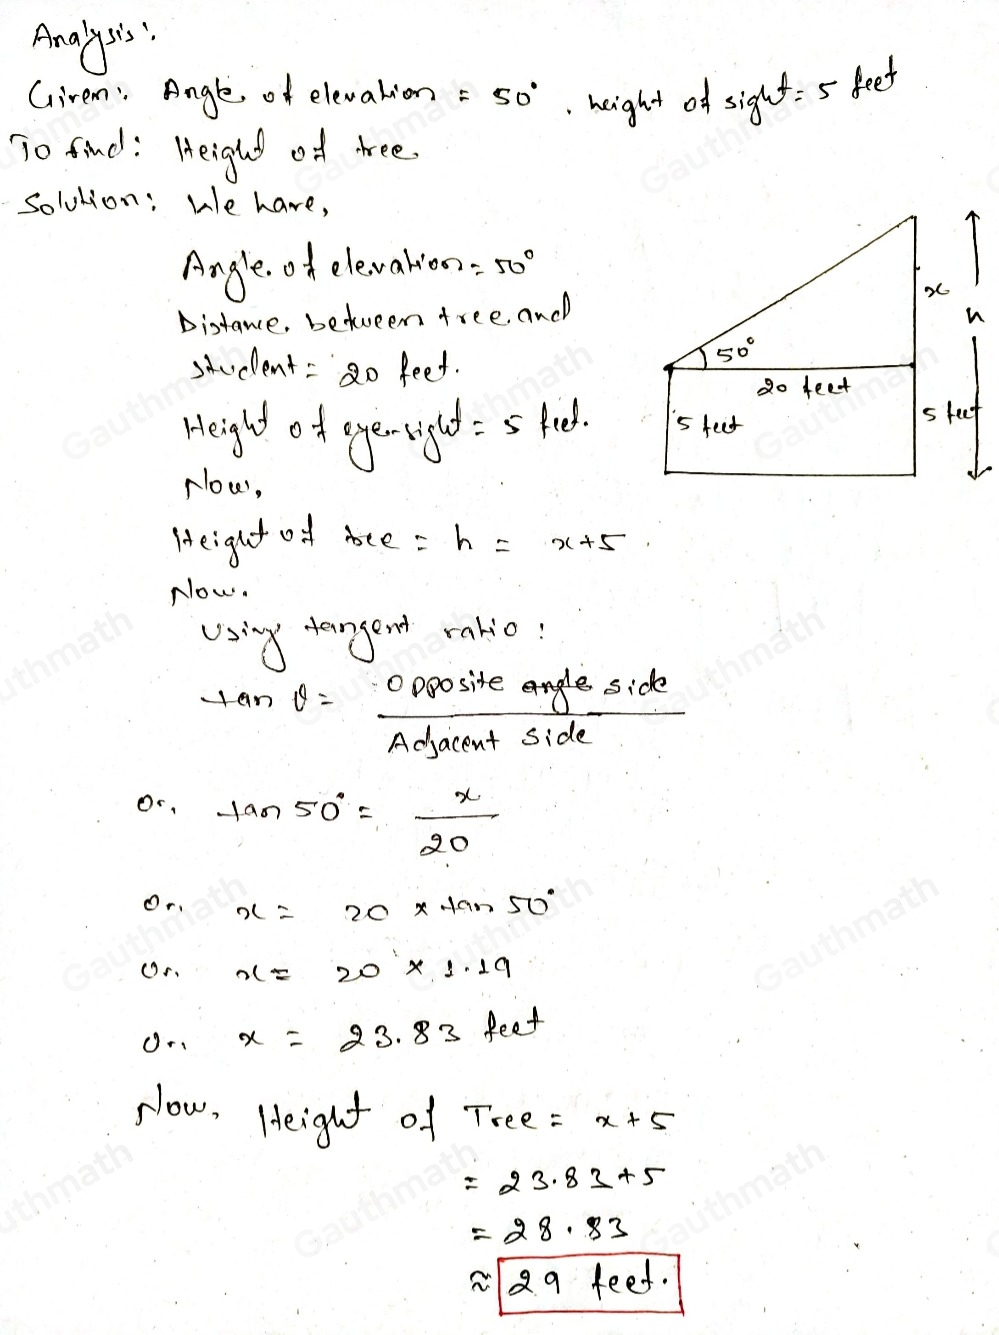 Analysis:
Given: Angle of elevation = 50°, height of sight = 5 feet
To find: Height of tree
Solution: We have,
Angle of elevation = 50°
Distance between tree and
student = 20 feet.
Height of eye-sight = 5 feet.
Now,
Height of tree = h = x+5.
Now.
Using tangent ratio:
tan θ = Opposite angle side
Adjacent side
Or, tan 50° = x
20
Or, x = 20 × tan 50°
Or, x = 20 × 1.19
Or, x = 23.83 feet
Now, Height of Tree = x+5
= 23.83+5
= 28.83
≈ 29 feet.
x
h
50°
20 feet
5 feet
5 feet
Gauthmath